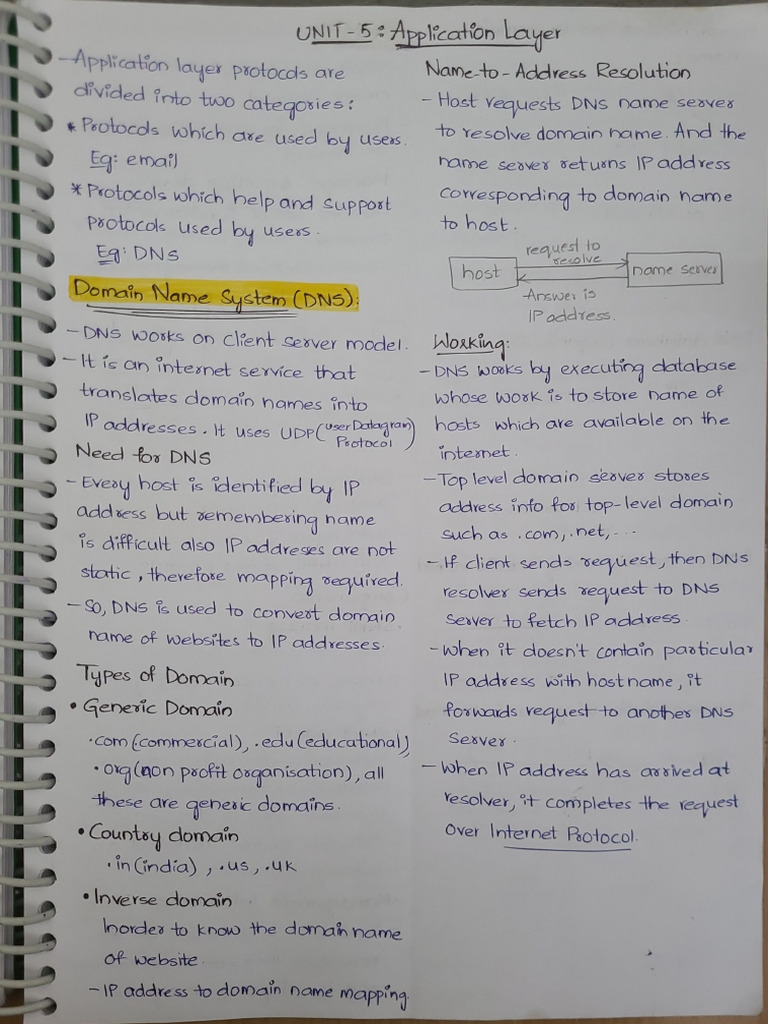 UNIT-5: Application Layer
- Application layer protocols are
divided into two categories:
* Protocols which are used by users.
Eg: email
* Protocols which help and support
protocols used by users.
Eg: DNS
Domain Name System (DNS):
- DNS works on client server model.
- It is an internet service that
translates domain names into
IP addresses. It uses UDP (user Datagram
Protocol)
Need for DNS
- Every host is identified by IP
address but remembering name
is difficult also IP addreses are not
static, therefore mapping required.
- So, DNS is used to convert domain
name of websites to IP addresses.
Types of Domain
• Generic Domain
.com (commercial), .edu (educational),
.org (non profit organisation), all
these are generic domains.
• Country domain
.in (india), .us, .uk
• Inverse domain
Inorder to know the domain name
of website.
- IP address to domain name mapping.
Name-to-Address Resolution
- Host requests DNS name server
to resolve domain name. And the
name server returns IP address
corresponding to domain name
to host.
request to
resolve
host
name server
Answer is
IP address.
Working:
- DNS works by executing database
whose work is to store name of
hosts which are available on the
internet.
- Top level domain server stores
address info for top-level domain
such as .com, .net, ...
- If client sends request, then DNS
resolver sends request to DNS
server to fetch IP address.
- When it doesn't contain particular
IP address with hostname, it
forwards request to another DNS
Server.
- When IP address has arrived at
resolver, it completes the request
over Internet Protocol.